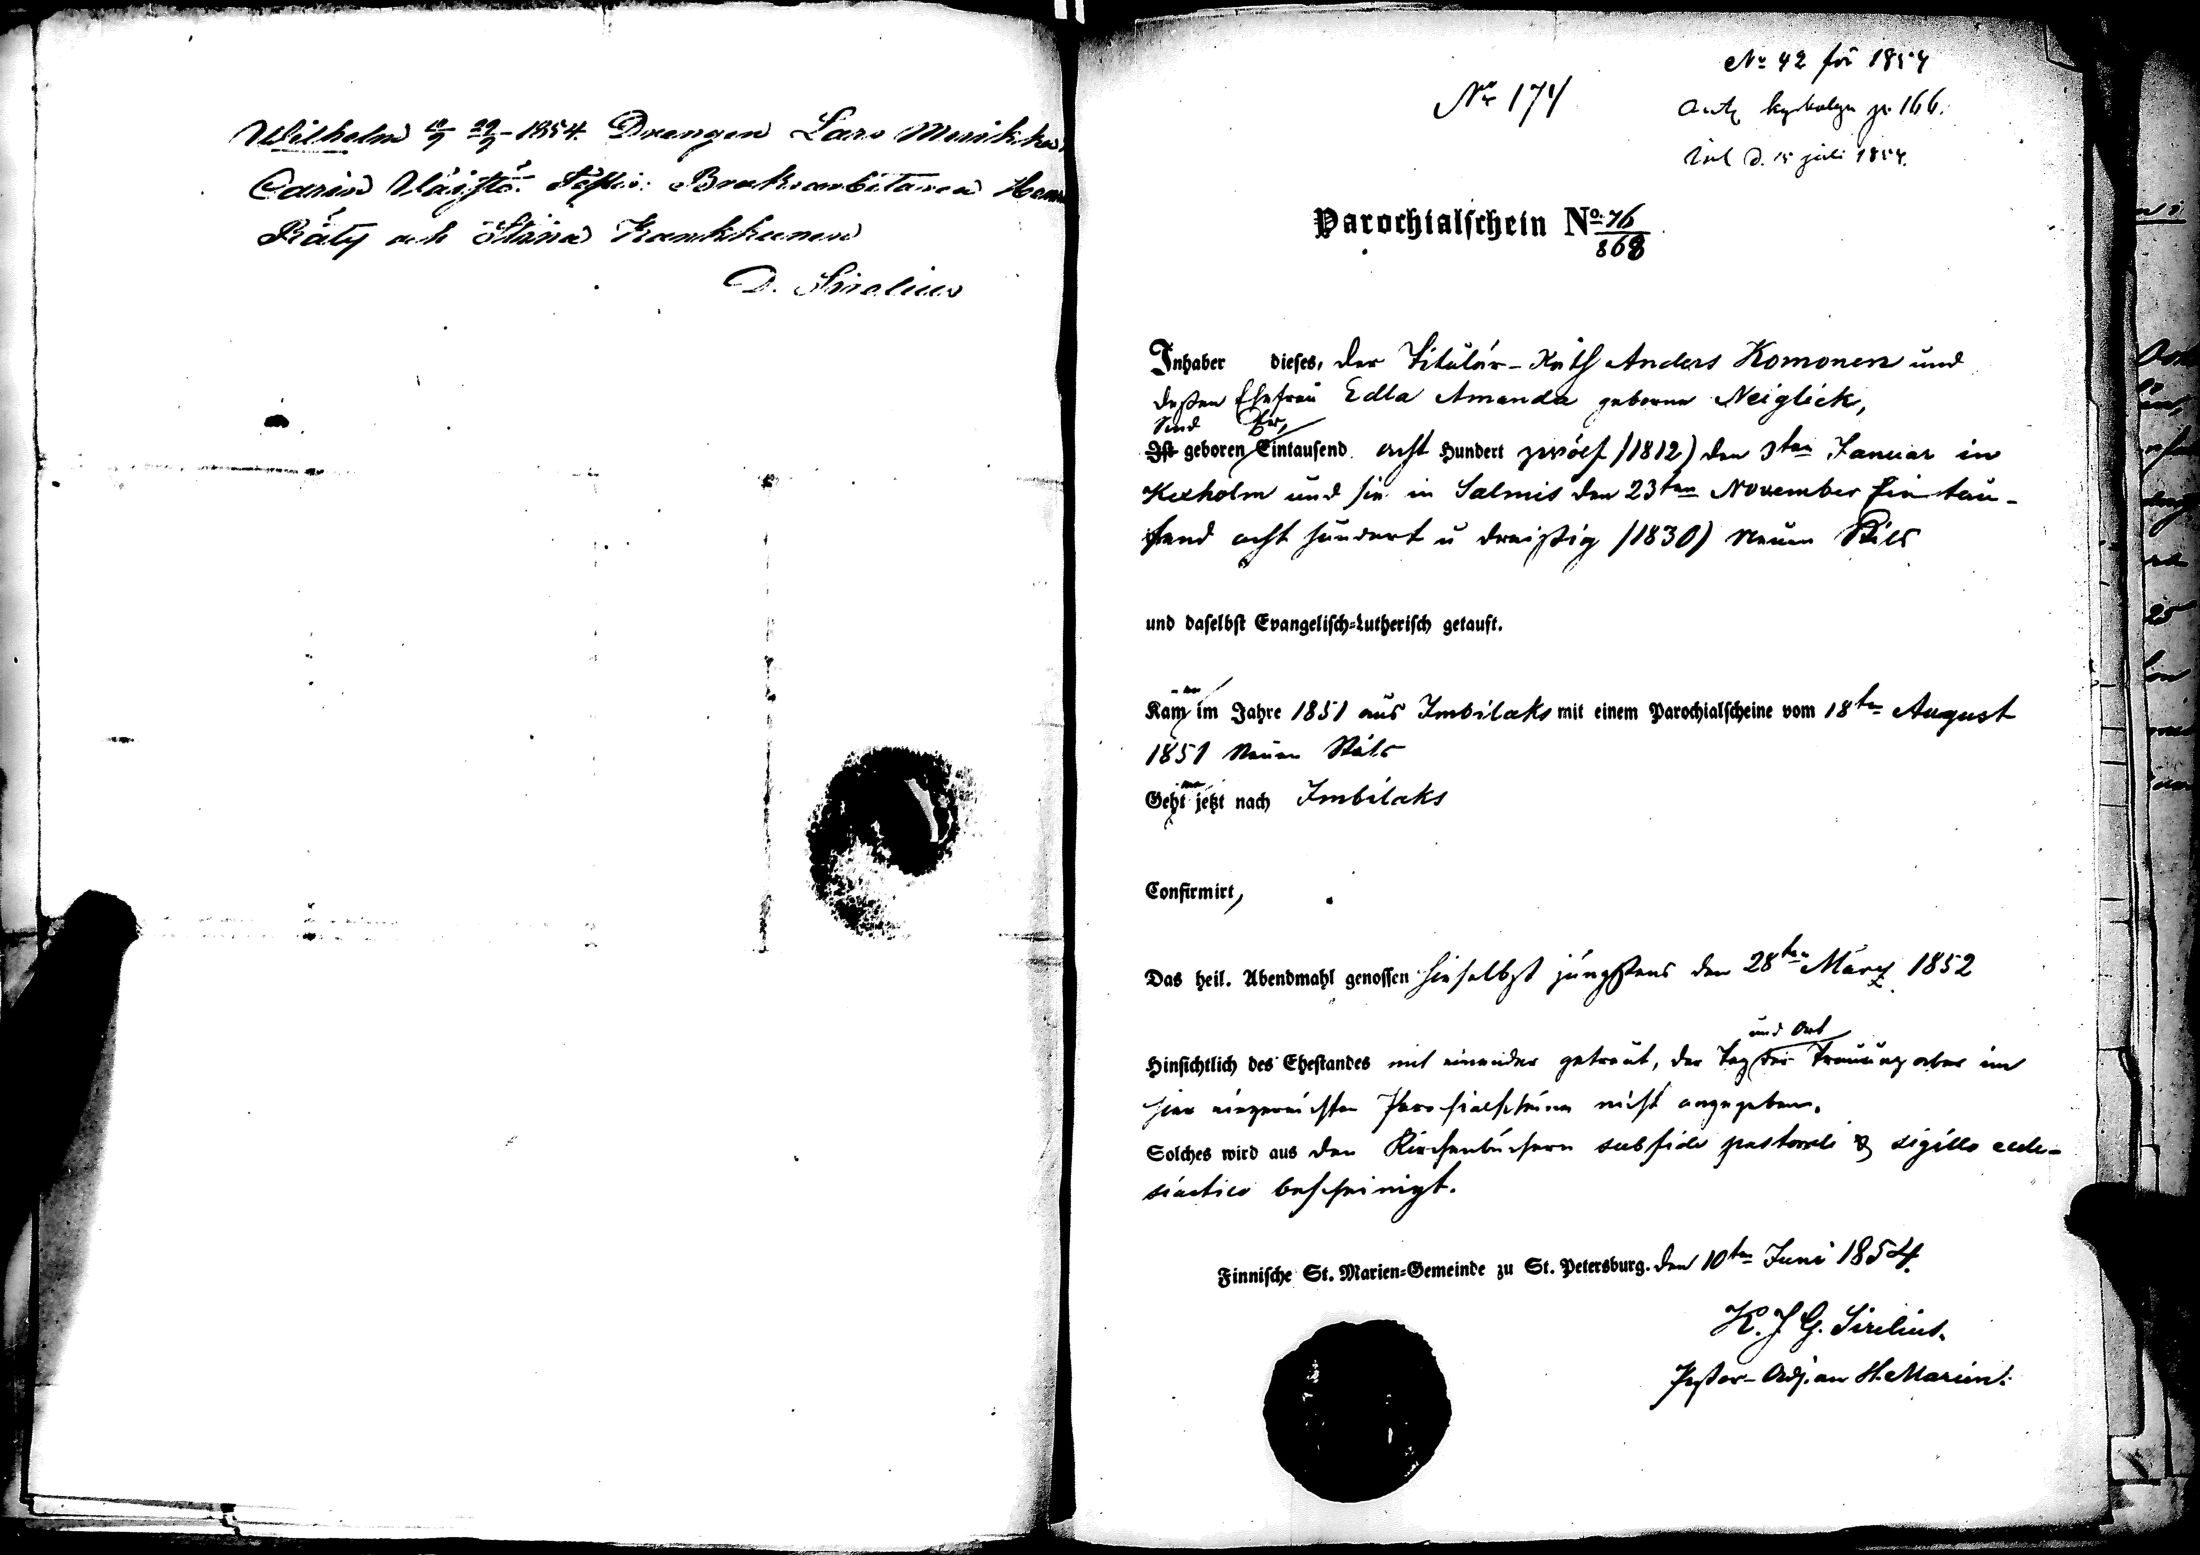 Wilhelm 1854. Drengen Lars
Carin Bruksarbetaren
Räty och Stina Kankkunen
D. Sirelius
No 174
No 42 för 1854
166.
d. 15 juli 1854.
Parochialschein No. 76/868
Inhaber dieses, der Titulär-Rath Anders Komonen und
deßen Ehefrau Edla Amanda geborne Neiglick,
Sind Er,
Ist geboren Eintausend acht Hundert zwölf (1812) den 3ten Januar in
Kexholm und sie in Salmis den 23ten November Ein tau-
send acht hundert u dreißig (1830) Neuen Stils
und daselbst Evangelisch-Lutherisch getauft.
Kam im Jahre 1851 aus Imbilaks mit einem Parochialscheine vom 18ten August
1851 Neuen Stils
Geht jetzt nach Imbilaks
Confirmirt,
Das heil. Abendmahl genossen hieselbst jüngstens den 28ten März 1852
und Ort
Hinsichtlich des Ehestandes mit einander getraut, der Tag der Trauung aber im
hier eingereichten Parochialscheine nicht angegeben.
Solches wird aus den Kirchenbüchern sub fide pastorali & sigillo eccle-
siastico bescheinigt.
Finnische St. Marien-Gemeinde zu St. Petersburg. den 10ten Juni 1854.
K. J. G. Sirelius.
Pastor-Adj. an St. Marien.